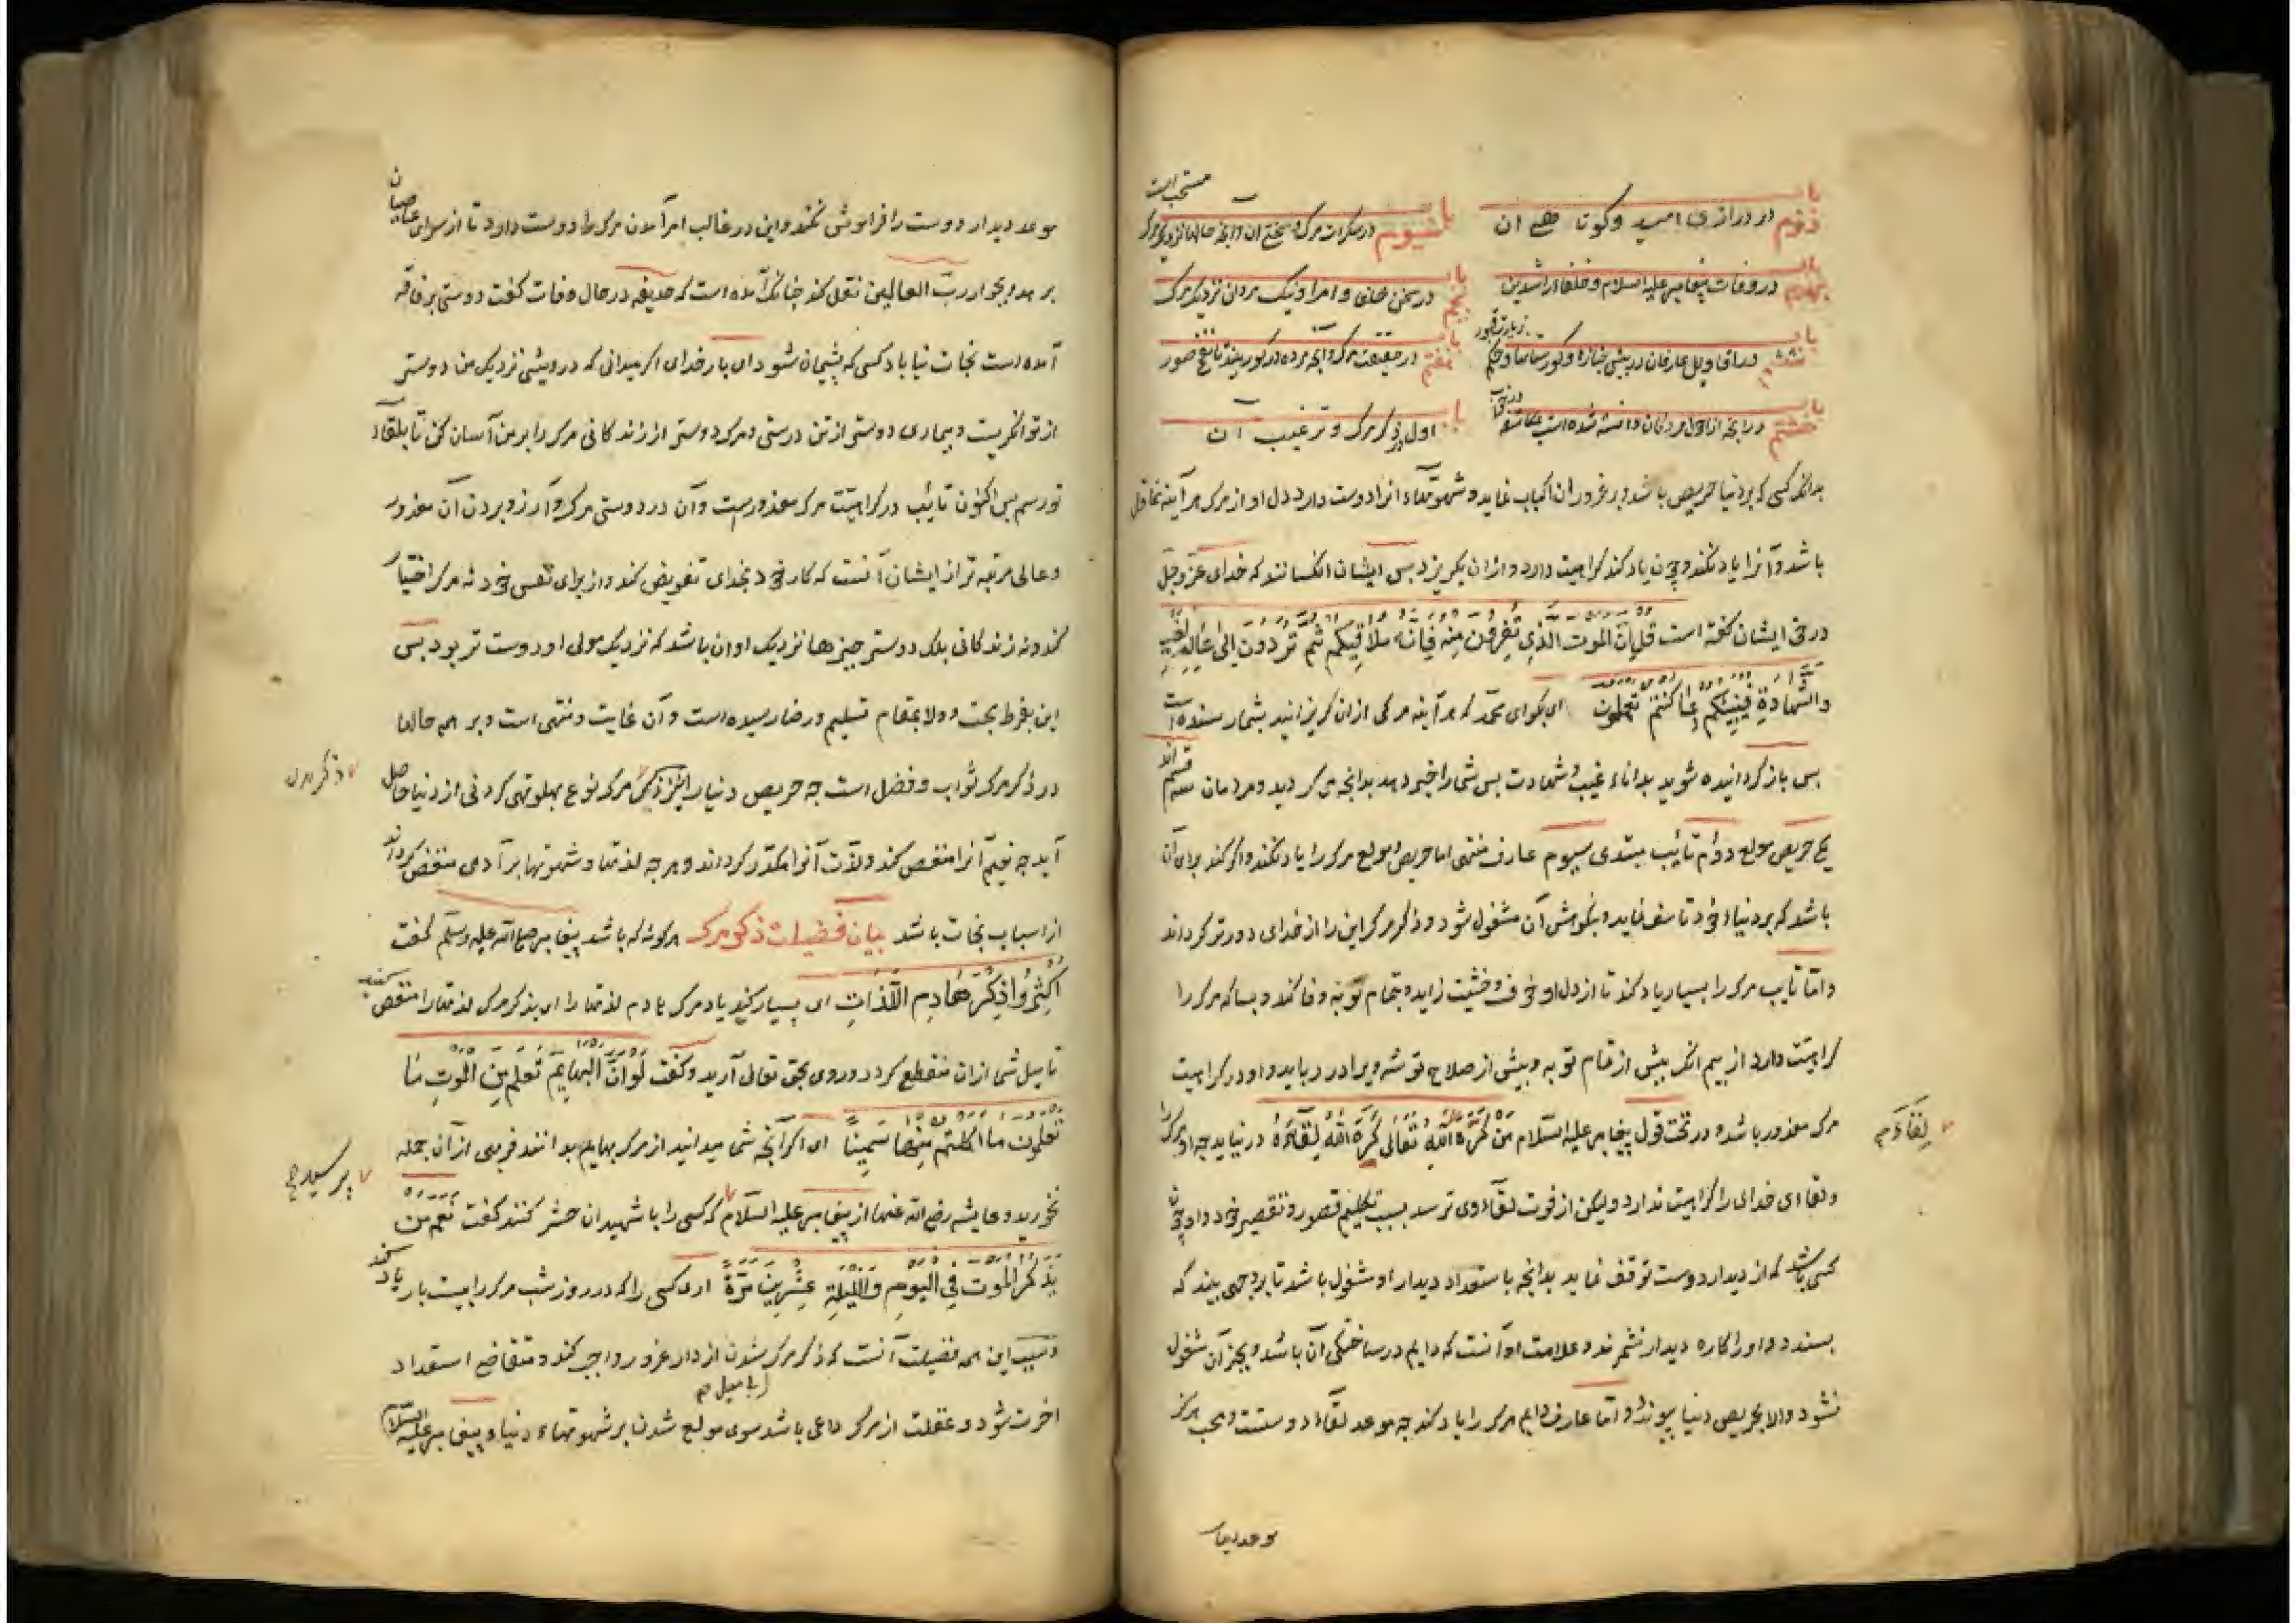 باب دوم در درازی امید و کوتاهی آن
باب سیوم در سکرات مرگ و سختی آن وانچه حالها نزدیک مرگ مستحب است
باب چهارم در وفات پیغامبر علیه السلام و خلفاء راشدین
باب پنجم در سخن خلفا و امرا و نیک مردان نزدیک مرک
باب ششم در اقاویل عارفان در پیش جنازه و کورستانها و حکم زیارت قبور
باب هفتم در حقیقت مرک وانچه مرده در کور بیند تا نفخ صور
باب هشتم در انچه از احوال مردکان دانسته شده است بمکاشفه در خواب
باب اول در ذکر مرک و ترغیب آن
بدانکه کسی که بر دنیا حریص باشد و بر غرور آن اکباب نماید و شهوتهاء آنرا دوست دارد دل او از مرک هر آینه غافل
باشد و آنرا یاد نکند و چون یاد کند کراهیت دارد و ازان بکریزد بس ایشان انکسانند که خدای عز و جل
در حق ایشان کفته است قل إن الموت الذی تفرون منه فإنه ملاقیکم ثم تردون إلی عالم الغیب
والشهادة فینبئکم بما کنتم تعملون ای بکو ای محمد که هر آینه مرکی ازان کریزانید بشما رسنده است
بس باز کردانیده شوید بداناء غیب و شهادت بس شما را خبر دهد بدانچه می کردید و مردمان سه قسم اند
یکی حریص مولع دوم تائب مبتدی سیوم عارف منتهی اما حریص مولع مرک را یاد نکند و اکر کند برای آن
باشد که بر دنیاء خود تاسف نماید و بنکوهش آن مشغول شود و ذکر مرک این را از خدای دورتر کرداند
و اما تایب مرک را بسیار یاد کند تا از دل او خوف و خشیت زاید و بتمام توبه وفا کند و بسا که مرک را
کراهیت دارد از بیم انکه بیش از تمام توبه و بیش از صلاح توشه ویرا در رباید و او در کراهیت
مرک معذور باشد و در تحت قول پیغامبر علیه السلام من کره لقاء الله تعالی کره الله لقاءه در نیاید چه او مرک را
لقاءم
و لقاء خدای را کراهیت ندارد و لیکن از فوت لقاء وی ترسد بسبب قصور و تقصیر خود و او چون
کسی باشد که از دیدار دوست توقف نماید بدانچه باستعداد دیدار او مشغول باشد تا بر وجهی بیند که
بسندد و او را کاره دیدار نشمرند و علامت او آنست که دایم در ساختکی آن باشد و بجز آن مشغول
نشود و الا بحریص دنیا پیوندد و اما عارف دایم مرک را یاد کند چه موعد لقاء دوستست و محب هرکز
موعد دیدار
موعد دیدار دوست را فراموش نکند و این در غالب امر آمدن مرک را دوست دارد تا از سرای عاصیان
برهد و بجوار رب العالمین نقل کند چنانک آمده است که حذیفه در حال وفات کفت دوستی بر فاقه
آمده است نجات نیاباد کسی که پشیمان شود ای بار خدای اکر میدانی که درویشی نزدیک من دوستر
از توانکریست و بیماری دوستر از تن درستی و مرک دوستر از زندکانی مرک را بر من آسان کن تا بلقاء
تو رسم بس اکنون تائب در کراهیت مرک معذورست و آن در دوستی مرک و آرزو بردن آن معذور
و عالی مرتبه تر از ایشان آنست که کار خود بخدای تفویض کند و از برای نفس خود نه مرک اختیار
کند و نه زندکانی بلک دوستر چیزها نزدیک او ان باشد که نزدیک مولی او دوست تر بود بس
این بفرط محبت و ولا بمقام تسلیم و رضا رسیده است و آن غایت و منتهی است و بر همه حالها
در ذکر مرک ثواب و فضل است چه حریص دنیا را نیز از ذکر مرک نوع پهلو تهی کردنی از دنیا حاصل
ذکر مرک
آید چه نعیم آنرا منغص کند و لذت آنرا مکدر کرداند و هر چه لذتها و شهوتها بر آدمی منغص کرداند
از اسباب نجات باشد بیان فضیلت ذکر مرک هرکونه که باشد پیغامبر صلی الله علیه وسلم کفت
أکثروا ذکر هادم اللذات ای بسیار کنید یاد مرک هادم لذتها را ای بذکر مرک لذتها را منغص کنید
تا میل شما ازان منقطع کردد و روی بحق تعالی آرید و کفت لو أن البهایم تعلم من الموت ما
تعلمون ما أکلتم منها سمینا ای اکر آنچه شما میدانید از مرک بهایم بدانند فربهی از آن جمله
نخورید و عایشه رضی الله عنها از پیغامبر علیه السلام که کسی را با شهیدان حشر کنند کفت نعم من
پرسید
یذکر الموت فی الیوم واللیلة عشرین مرة اری کسی را که در روز شب مرک را بیست بار یاد کند
و سبب این همه فضیلت آنست که ذکر مرک شدن از دار غرور واجب کند و متقاضی استعداد
اخرت شود و غفلت از مرک داعی باشد سوی مولع شدن بر شهوتهاء دنیا و پیغامبر علیه السلام